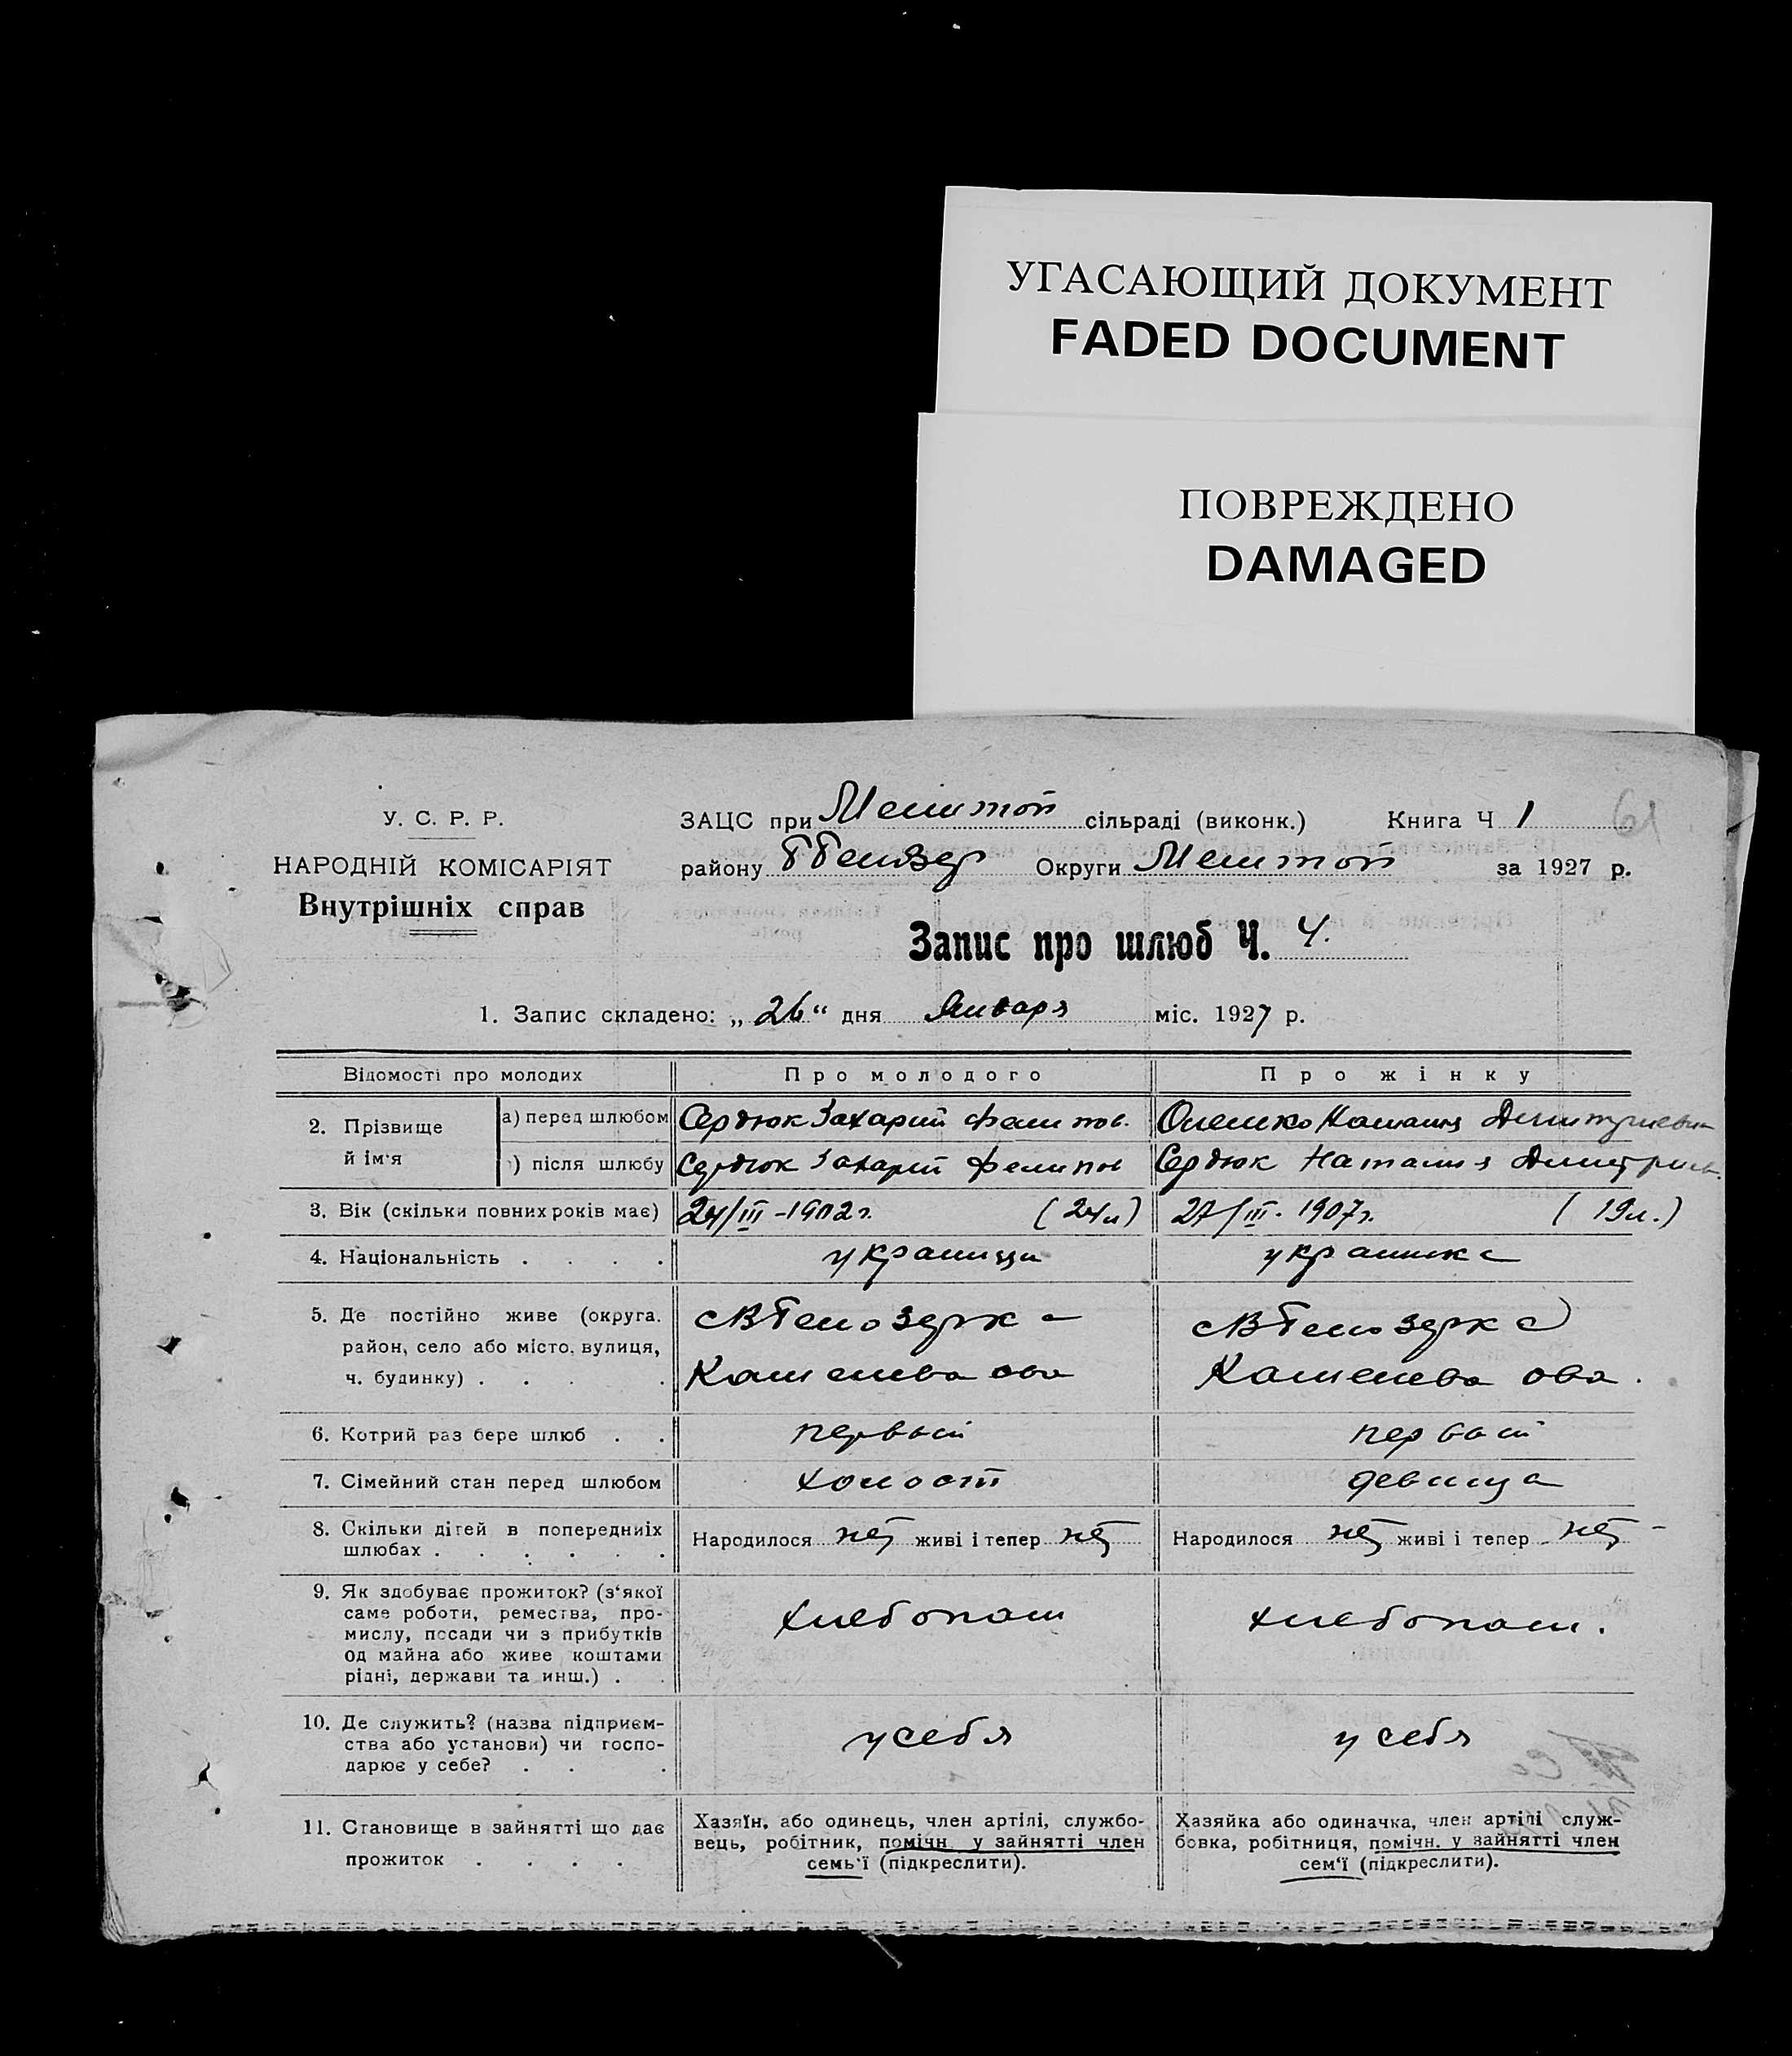 УГАСАЮЩИЙ ДОКУМЕНТ
FADED DOCUMENT
ПОВРЕЖДЕНО
DAMAGED
61
У. С. Р. Р.
НАРОДНІЙ КОМІСАРІЯТ
Внутрішніх справ
ЗАЦС при Мелитоп сільраді (виконк.) Книга Ч 1
району Округи Мелитоп за 1927 р.
Запис про шлюб Ч. 4.
1. Запис складено: „26“ дня Января міс. 1927 р.
Відомості про молодих Про молодого Про жінку
2. Прізвище й ім'я
а) перед шлюбом Сердюк Захарий Филипов. Олешко Наталия Димитриевн
) після шлюбу Сердюк Захарий Филипов Сердюк Наталия Димитриев.
3. Вік (скільки повних років має) 24/III-1902 г. (24 л) 27/III. 1907 г. (19 л.)
4. Національність . . . . украинци украинка
5. Де постійно живе (округа, район, село або місто, вулиця, ч. будинку) . . . .
сВБелозерка
сВБелозерка
6. Котрий раз бере шлюб . . первый первый
7. Сімейний стан перед шлюбом холост девица
8. Скільки дітей в попередніх шлюбах . . . . . .
Народилося нет живі і тепер нет Народилося нет живі і тепер нет -
9. Як здобуває прожиток? (з'якої
саме роботи, ремества, про-
мислу, посади чи з прибутків
од майна або живе коштами
рідні, держави та инш.) . .
хлебопаш хлебопаш.
10. Де служить? (назва підприєм-
ства або установи) чи госпо-
дарює у себе? . . .
у себя у себя
11. Становище в зайнятті що дає
прожиток . . . .
Хазяїн, або одинець, член артілі, службо-
вець, робітник, помічн. у зайнятті член
семь'ї (підкреслити).
Хазяйка або одиначка, член артілі служ-
бовка, робітниця, помічн. у зайнятті член
сем'ї (підкреслити).